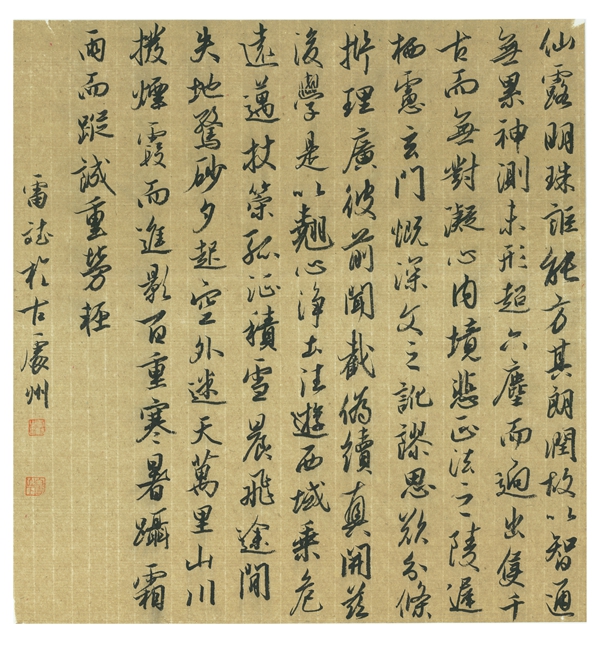 仙露明珠詎能方其朗潤故以智通
無累神測未形超六塵而迥出隻千
古而無對凝心內境悲正法之陵遲
栖慮玄門慨深文之訛謬思欲分條
析理廣彼前聞截偽續真開茲
後學是以翹心淨土往遊西域乘危
遠邁杖策孤征積雪晨飛途間
失地驚砂夕起空外迷天萬里山川
撥煙霞而進影百重寒暑躡霜
雨而蹤誠重勞輕
雷誌於古州